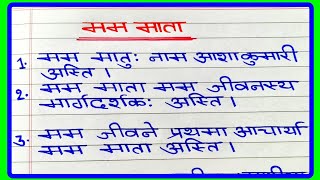 मम माता
1. मम मातुः नाम आशाकुमारी
अस्ति ।
2. मम माता मम जीवनस्य
मार्गदर्शकः अस्ति ।
3. मम जीवने प्रथमा आचार्या
मम माता अस्ति ।